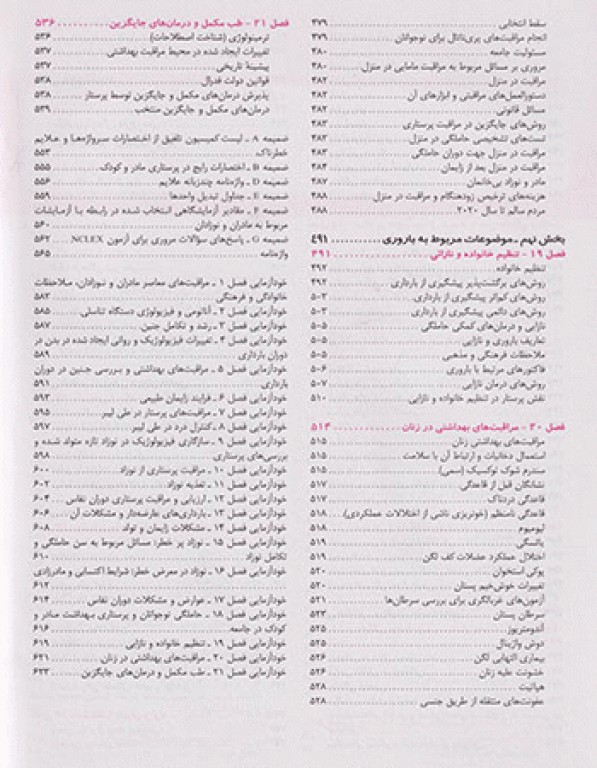 سقط انتخابی ............ ۴۷۹
انجام مراقبت‌های پری‌ناتال برای نوجوانان ............ ۴۷۹
مسئولیت جامعه ............ ۴۸۰
مروری بر مسائل مربوط به مراقبت مامایی در منزل ............ ۴۸۰
مراقبت در منزل ............ ۴۸۲
دستورالعمل‌های مراقبتی و ابزارهای آن ............ ۴۸۲
مسائل قانونی ............ ۴۸۲
روش‌های جایگزین در مراقبت پرستاری ............ ۴۸۳
تست‌های تشخیصی حاملگی در منزل ............ ۴۸۳
مراقبت در منزل جهت دوران حاملگی ............ ۴۸۳
مراقبت در منزل بعد از زایمان ............ ۴۸۴
مادر و نوزاد بی‌خانمان ............ ۴۸۷
هزینه‌های ترخیص زودهنگام و مراقبت در منزل ............ ۴۸۸
مردم سالم تا سال ۲۰۲۰ ............ ۴۸۸
بخش نهم ـ موضوعات مربوط به باروری ............ ۴۹۱
فصل ۱۹ - تنظیم خانواده و نازائی ............ ۴۹۱
تنظیم خانواده ............ ۴۹۲
روش‌های برگشت‌پذیر پیشگیری از بارداری ............ ۴۹۲
روش‌های کم‌اثر پیشگیری از بارداری ............ ۵۰۲
روش‌های دائمی پیشگیری از بارداری ............ ۵۰۳
نازایی و درمان‌های کمکی حاملگی ............ ۵۰۵
تعاریف باروری و نازایی ............ ۵۰۵
ملاحظات فرهنگی و مذهبی ............ ۵۰۵
فاکتورهای مرتبط با باروری ............ ۵۰۶
روش‌های درمان نازایی ............ ۵۰۷
نقش پرستار در تنظیم خانواده و نازایی ............ ۵۱۰
فصل ۲۰ - مراقبت‌های بهداشتی در زنان ............ ۵۱۴
مراقبت‌های بهداشتی زنان ............ ۵۱۵
استعمال دخانیات و ارتباط آن با سلامت ............ ۵۱۵
سندرم شوک توکسیک (سمی) ............ ۵۱۵
نشانگان قبل از قاعدگی ............ ۵۱۷
قاعدگی دردناک ............ ۵۱۷
قاعدگی نامنظم (خونریزی ناشی از اختلالات عملکردی) .... ۵۱۸
لیومیوم ............ ۵۱۸
یائسگی ............ ۵۱۹
اختلال عملکرد عضلات کف لگن ............ ۵۱۹
پوکی استخوان ............ ۵۲۰
تغییرات خوش‌خیم پستان ............ ۵۲۰
آزمون‌های غربالگری برای بررسی سرطان‌ها ............ ۵۲۱
سرطان پستان ............ ۵۲۳
آندومتریوز ............ ۵۲۵
دوش واژینال ............ ۵۲۵
بیماری التهابی لگن ............ ۵۲۶
خشونت علیه زنان ............ ۵۲۶
هپاتیت ............ ۵۲۸
عفونت‌های منتقله از طریق جنسی ............ ۵۲۸
فصل ۲۱ - طب مکمل و درمان‌های جایگزین ............ ۵۳۶
ترمینولوژی (شناخت اصطلاحات) ............ ۵۳۶
تغییرات ایجاد شده در محیط مراقبت بهداشتی ............ ۵۳۷
پیشینهٔ تاریخی ............ ۵۳۷
قوانین دولت فدرال ............ ۵۳۸
پذیرش درمان‌های مکمل و جایگزین توسط پرستار ............ ۵۳۸
درمان‌های مکمل و جایگزین منتخب ............ ۵۳۹
ضمیمه A ـ لیست کمیسیون تلفیق از اختصارات سرواژه‌ها و علایم
خطرناک ............ ۵۵۳
ضمیمه B ـ اختصارات رایج در پرستاری مادر و کودک ............ ۵۵۵
ضمیمه D ـ واژه‌نامه چندزبانه علایم ............ ۵۵۶
ضمیمه E ـ جداول تبدیل واحدها ............ ۵۵۹
ضمیمه F ـ مقادیر آزمایشگاهی انتخاب شده در رابطه با آزمایشات
مربوط به مادران و نوزادان ............ ۵۶۰
ضمیمه G ـ پاسخ‌های سؤالات مروری برای آزمون NCLEX ............ ۵۶۲
واژه‌نامه ............ ۵۶۵
خودآزمایی فصل ۱ ـ مراقبت‌های معاصر مادران و نوزادان، ملاحظات
خانوادگی و فرهنگی ............ ۵۸۳
خودآزمایی فصل ۲ ـ آناتومی و فیزیولوژی دستگاه تناسلی ............ ۵۸۵
خودآزمایی فصل ۳ ـ رشد و تکامل جنین ............ ۵۸۷
خودآزمایی فصل ۴ ـ تغییرات فیزیولوژیک و روانی ایجاد شده در بدن در
دوران بارداری ............ ۵۸۹
خودآزمایی فصل ۵ ـ مراقبت‌های بهداشتی و بررسی جنین در دوران
بارداری ............ ۵۹۱
خودآزمایی فصل ۶ ـ فرایند زایمان طبیعی ............ ۵۹۳
خودآزمایی فصل ۷ ـ مراقبت‌های پرستار در طی لیبر ............ ۵۹۵
خودآزمایی فصل ۸ ـ کنترل درد در طی لیبر ............ ۵۹۷
خودآزمایی فصل ۹ ـ سازگاری فیزیولوژیک در نوزاد تازه متولد شده و
بررسی‌های پرستاری ............ ۵۹۸
خودآزمایی فصل ۱۰ ـ مراقبت پرستاری از نوزاد ............ ۶۰۰
خودآزمایی فصل ۱۱ ـ تغذیه نوزاد ............ ۶۰۲
خودآزمایی فصل ۱۲ ـ ارزیابی و مراقبت پرستاری دوران نفاس .... ۶۰۴
خودآزمایی فصل ۱۳ ـ بارداری‌های عارضه‌دار و مشکلات آن .... ۶۰۶
خودآزمایی فصل ۱۴ ـ مشکلات زایمان و تولد ............ ۶۰۸
خودآزمایی فصل ۱۵ ـ نوزاد پر خطر: مسائل مربوط به سن حاملگی و
تکامل نوزاد ............ ۶۱۰
خودآزمایی فصل ۱۶ ـ نوزاد در معرض خطر: شرایط اکتسابی و مادرزادی
............ ۶۱۲
خودآزمایی فصل ۱۷ ـ عوارض و مشکلات دوران نفاس ............ ۶۱۴
خودآزمایی فصل ۱۸ ـ حاملگی نوجوانان و پرستاری بهداشت مادر و
کودک در جامعه ............ ۶۱۶
خودآزمایی فصل ۱۹ ـ تنظیم خانواده و نازایی ............ ۶۱۹
خودآزمایی فصل ۲۰ ـ مراقبت‌های بهداشتی در زنان ............ ۶۲۱
خودآزمایی فصل ۲۱ ـ طب مکمل و درمان‌های جایگزین ............ ۶۲۳